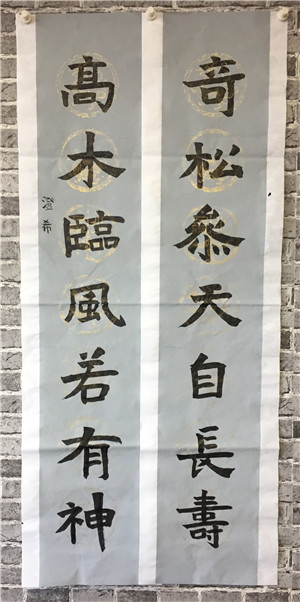 奇松叅天自長壽
髙木臨風若有神
澄希